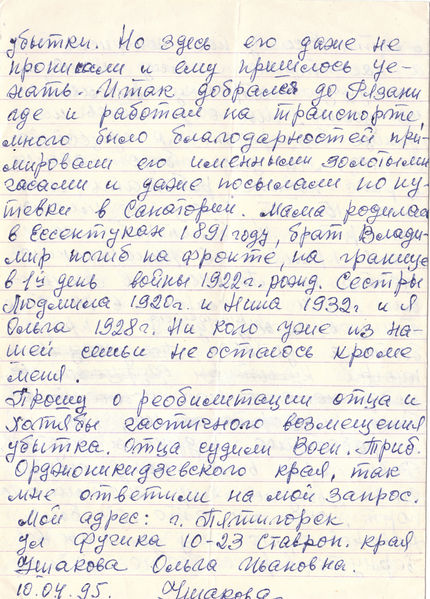 убытки. Но здесь его даже не
прописали и ему пришлось уе-
хать. Итак добрался до Рязани
где и работал на транспорте,
много было благодарностей при-
мировали его именными золотыми
часами и даже посылали по пу-
тевки в Санаторий. Мама родилась
в Ессентуках 1891 году, брат Влади-
мир погиб на фронте, на границе
в 1й день войны 1922г. рожд. Сестры
Людмила 1920г. и Нина 1932г и я
Ольга 1928г. Ни кого уже из на-
шей семьи не осталось кроме
меня.
Прошу о реобилитации отца и
хотябы частичного возмещения
убытка. Отца судили Воен. Приб.
Орджоникидзевского края, так
мне ответили на мой запрос.
Мой адрес: г. Пятигорск
ул Фучика 10-23 Ставроп. края
Ушакова Ольга Ивановна.
10.04.95. Ушакова